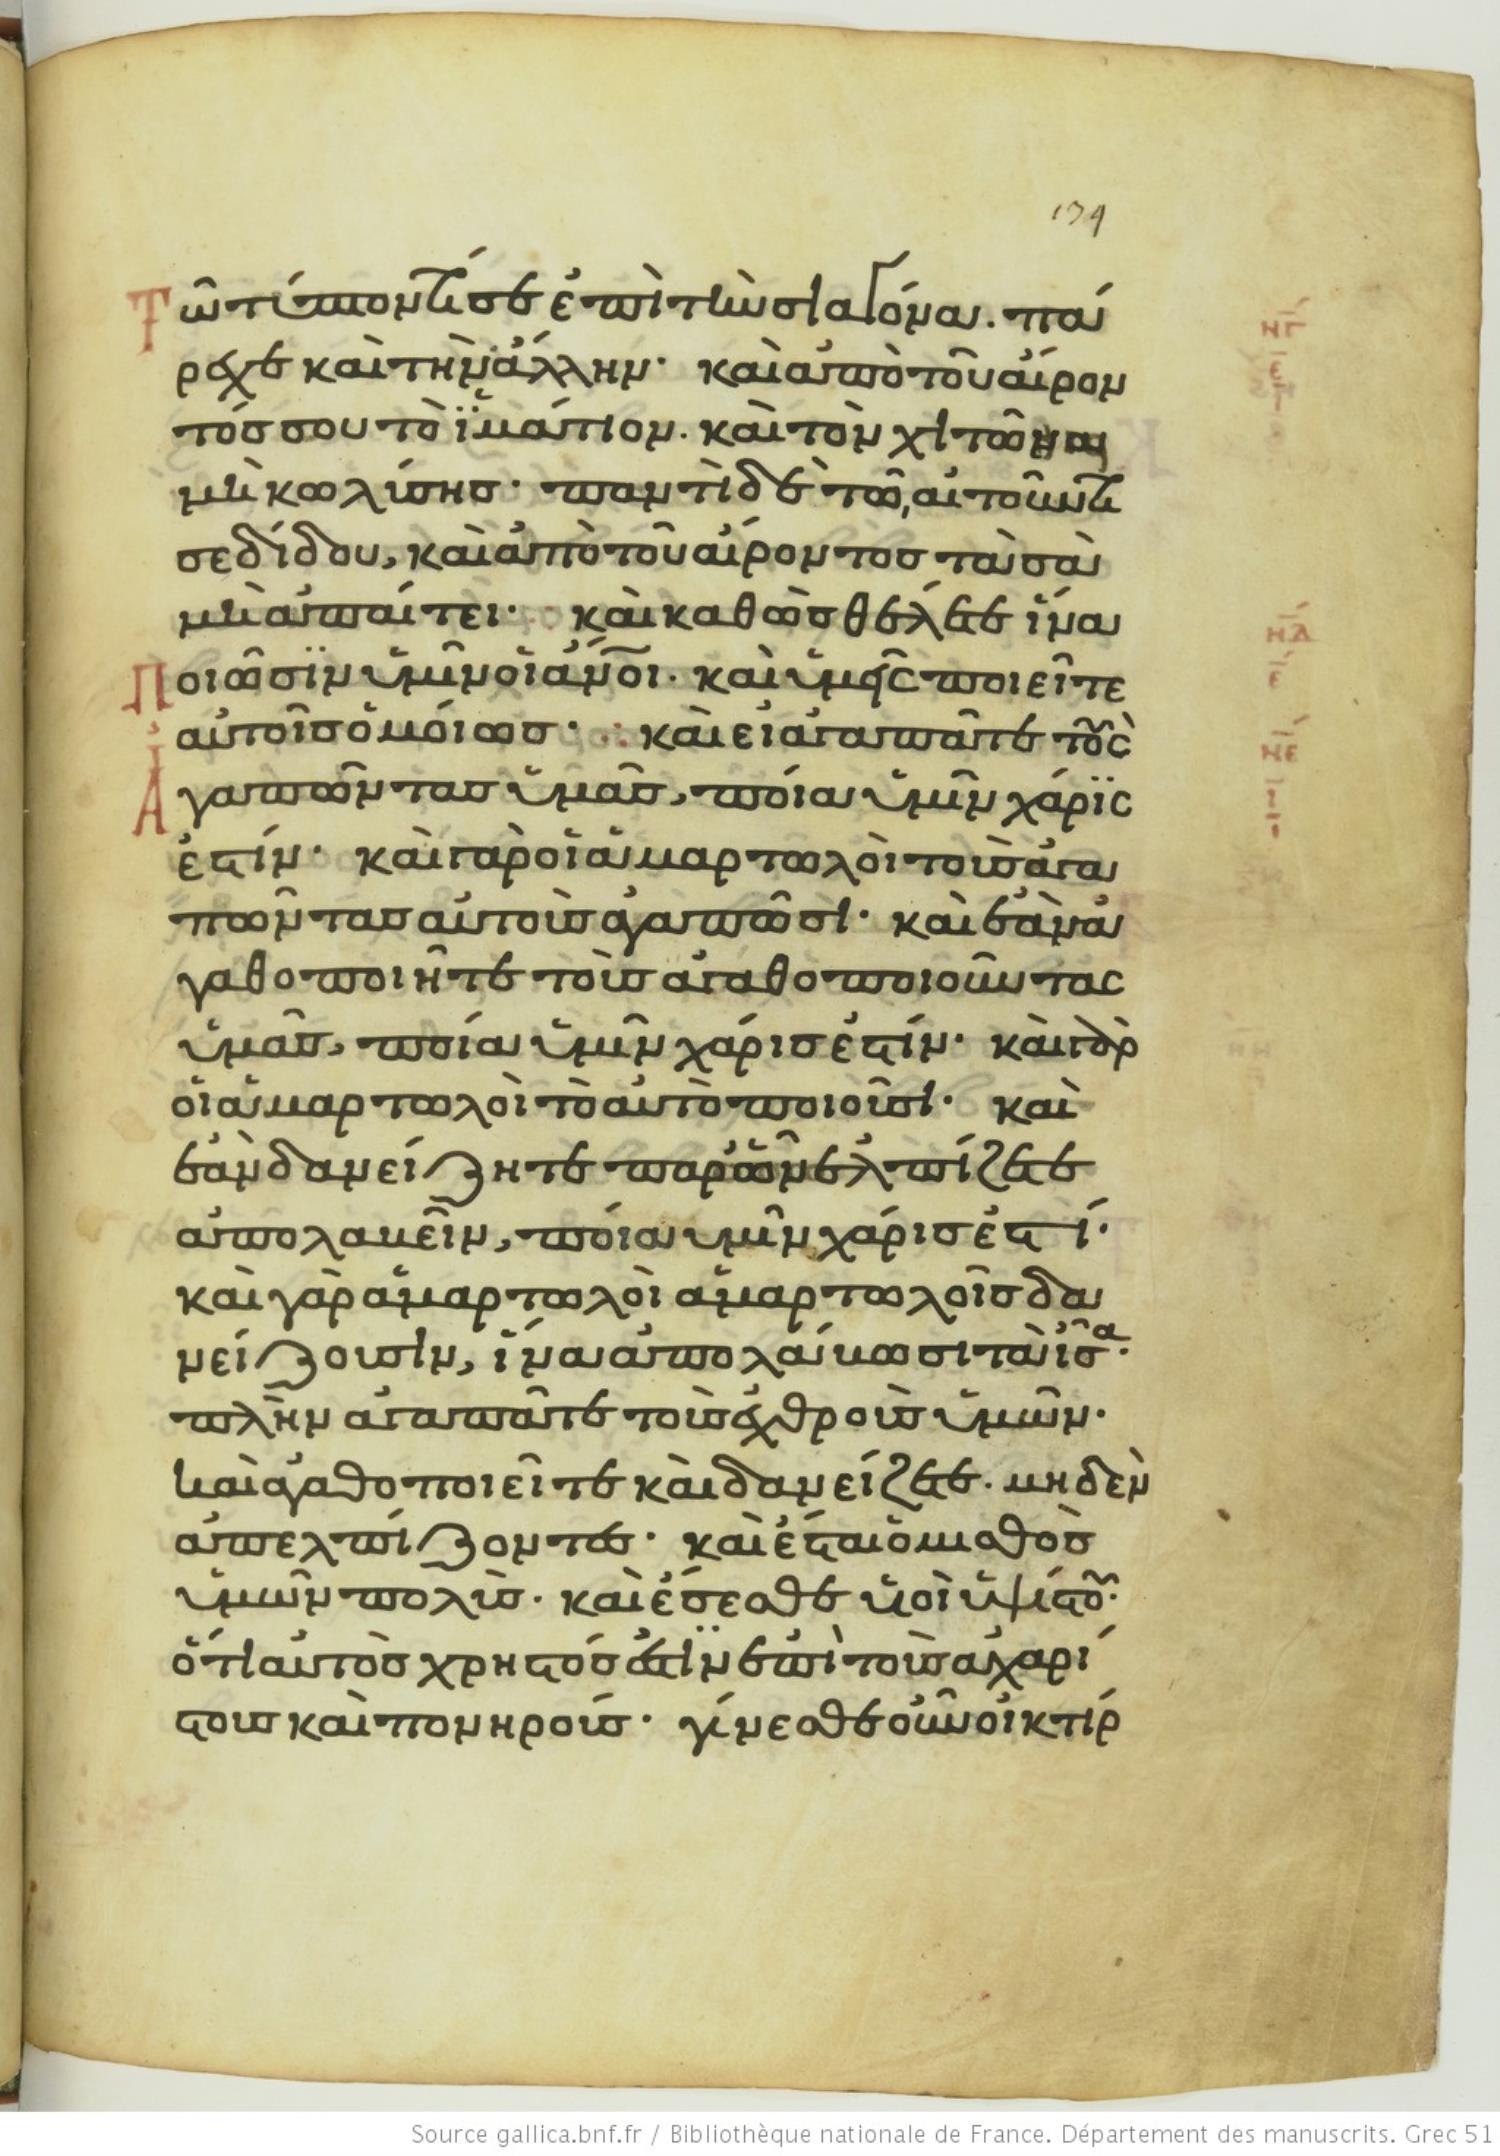 139
Τῶ τύπτοντί σε ἐπὶ τὴν σιαγόνα. πά
ρεχε καὶ τὴν ἄλλην· καὶ ἀπὸ τοῦ αἴρον
τός σου τὸ ἱμάτιον. καὶ τὸν χιτῶνα
μὴ κωλύσης· παντὶ δὲ τῶ αἰτοῦντί
σε δίδου, καὶ ἀπὸ τοῦ αἴροντος τὰ σὰ
μὴ ἀπαίτει· καὶ καθὼς θέλετε ἵνα
Ποιῶσϊν ὑμῖν οἱ ἄνοι. καὶ ὑμεῖς ποιεῖτε
αὐτοῖς ὁμοίως· καὶ εἰ ἀγαπᾶτε τοὺς
Ἀγαπῶντας ὑμᾶς, ποία ὑμῖν χάρϊς
ἐστίν· καὶ γὰρ οἱ ἁμαρτωλοὶ τοὺς ἀγα
πῶντας αὐτοὺς ἀγαπῶσι· καὶ ἐὰν ἀ
γαθοποιῆτε τοὺς ἀγαθοποιοῦντας
ὑμᾶς, ποία ὑμῖν χάρις ἐστίν· καὶ γὰρ
οἱ ἁμαρτωλοὶ τὸ αὐτὸ ποιοῦσι· καὶ
ἐὰν δανείζητε παρ' ὧν ἐλπίζετε
ἀπολαβεῖν, ποία ὑμῖν χάρις ἐστί·
καὶ γὰρ ἁμαρτωλοὶ ἁμαρτωλοῖς δα
νείζουσιν, ἵνα ἀπολάβωσι τὰ ἴσα·
πλὴν ἀγαπᾶτε τοὺς ἐχθροὺς ὑμῶν·
καὶ ἀγαθοποιεῖτε καὶ δανείζετε. μηδὲν
ἀπελπίζοντες· καὶ ἔσται ὁ μισθὸς
ὑμῶν πολὺς. καὶ ἔσεσθε υἱοὶ ὑψίστου·
ὅτι αὐτὸς χρηστός ἐστϊν ἐπὶ τοὺς ἀχαρί
στους καὶ πονηρούς· γίνεσθε οὖν οἰκτίρ
νγ
ε
νδ
ε
νε
ι
Source gallica.bnf.fr / Bibliothèque nationale de France. Département des manuscrits. Grec 51